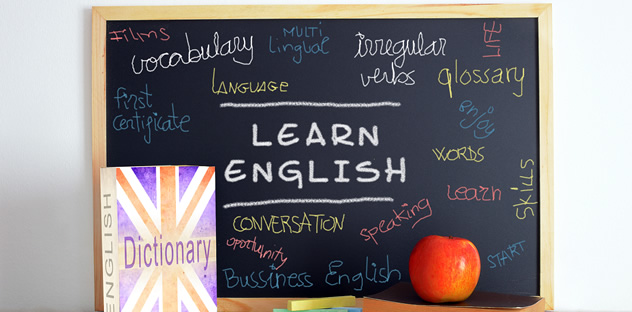 FILMS
vocabulary
MULTI
lingual
irregular
verbs
LANGUAGE
glossary
first
certificate
enjoy
LEARN
ENGLISH
WORDS
learn
SKILLS
CONVERSATION
speaking
oportunity
START
Bussiness English
ENGLISH
Dictionary